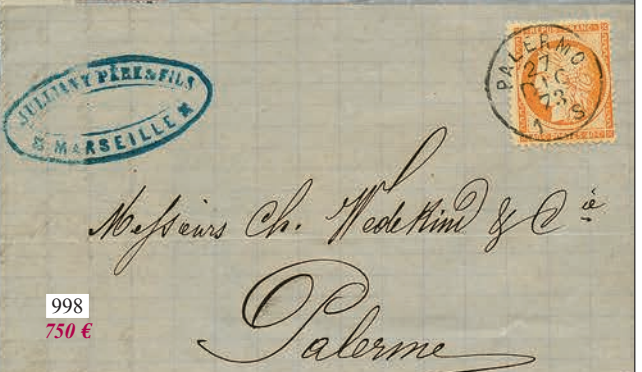 JULLIANY PÈRE & FILS
MARSEILLE
REPUB. FRANC.
PALERMO
27
DIC
73
1 S
Messieurs Ch. Wedekind & Cie
Palerme
998
750 €